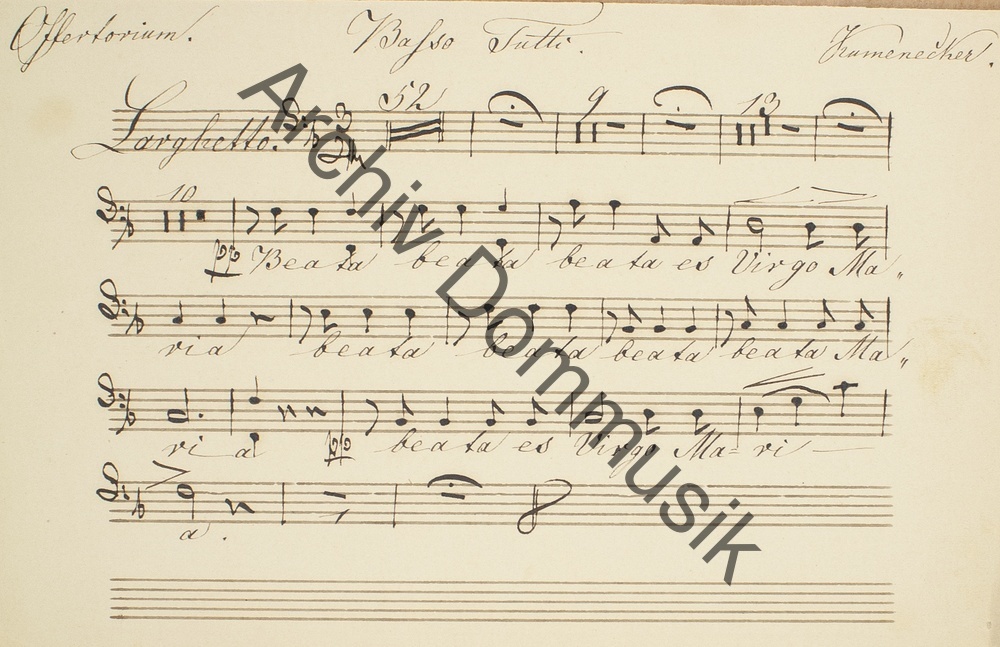 Offertorium. Basso Tutti. Kumenecker.
Larghetto. 3 52 9 13
10
pp Beata beata beata es Virgo Ma„
ria beata beata beata beata Ma„
ria pp beata es Virgo Ma= ri —
a.
Archiv Dommusik